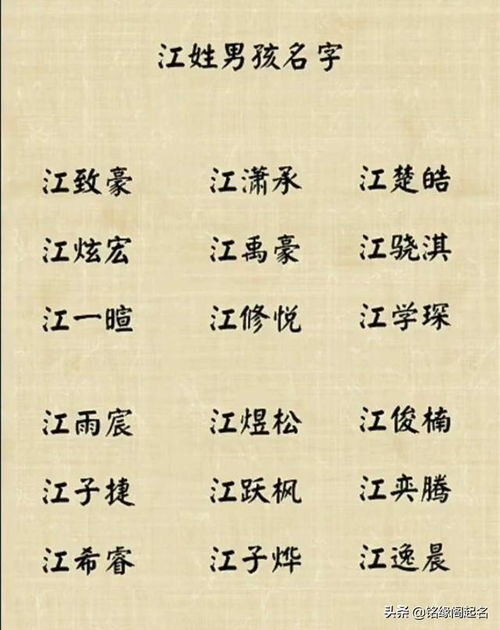 江姓男孩名字
江致豪 江潇承 江楚皓
江炫宏 江禹豪 江骁淇
江一暄 江修悦 江学琛
江雨宸 江煜松 江俊楠
江子捷 江跃枫 江奕腾
江希睿 江子烨 江逸晨
头条 @铭缘阁起名